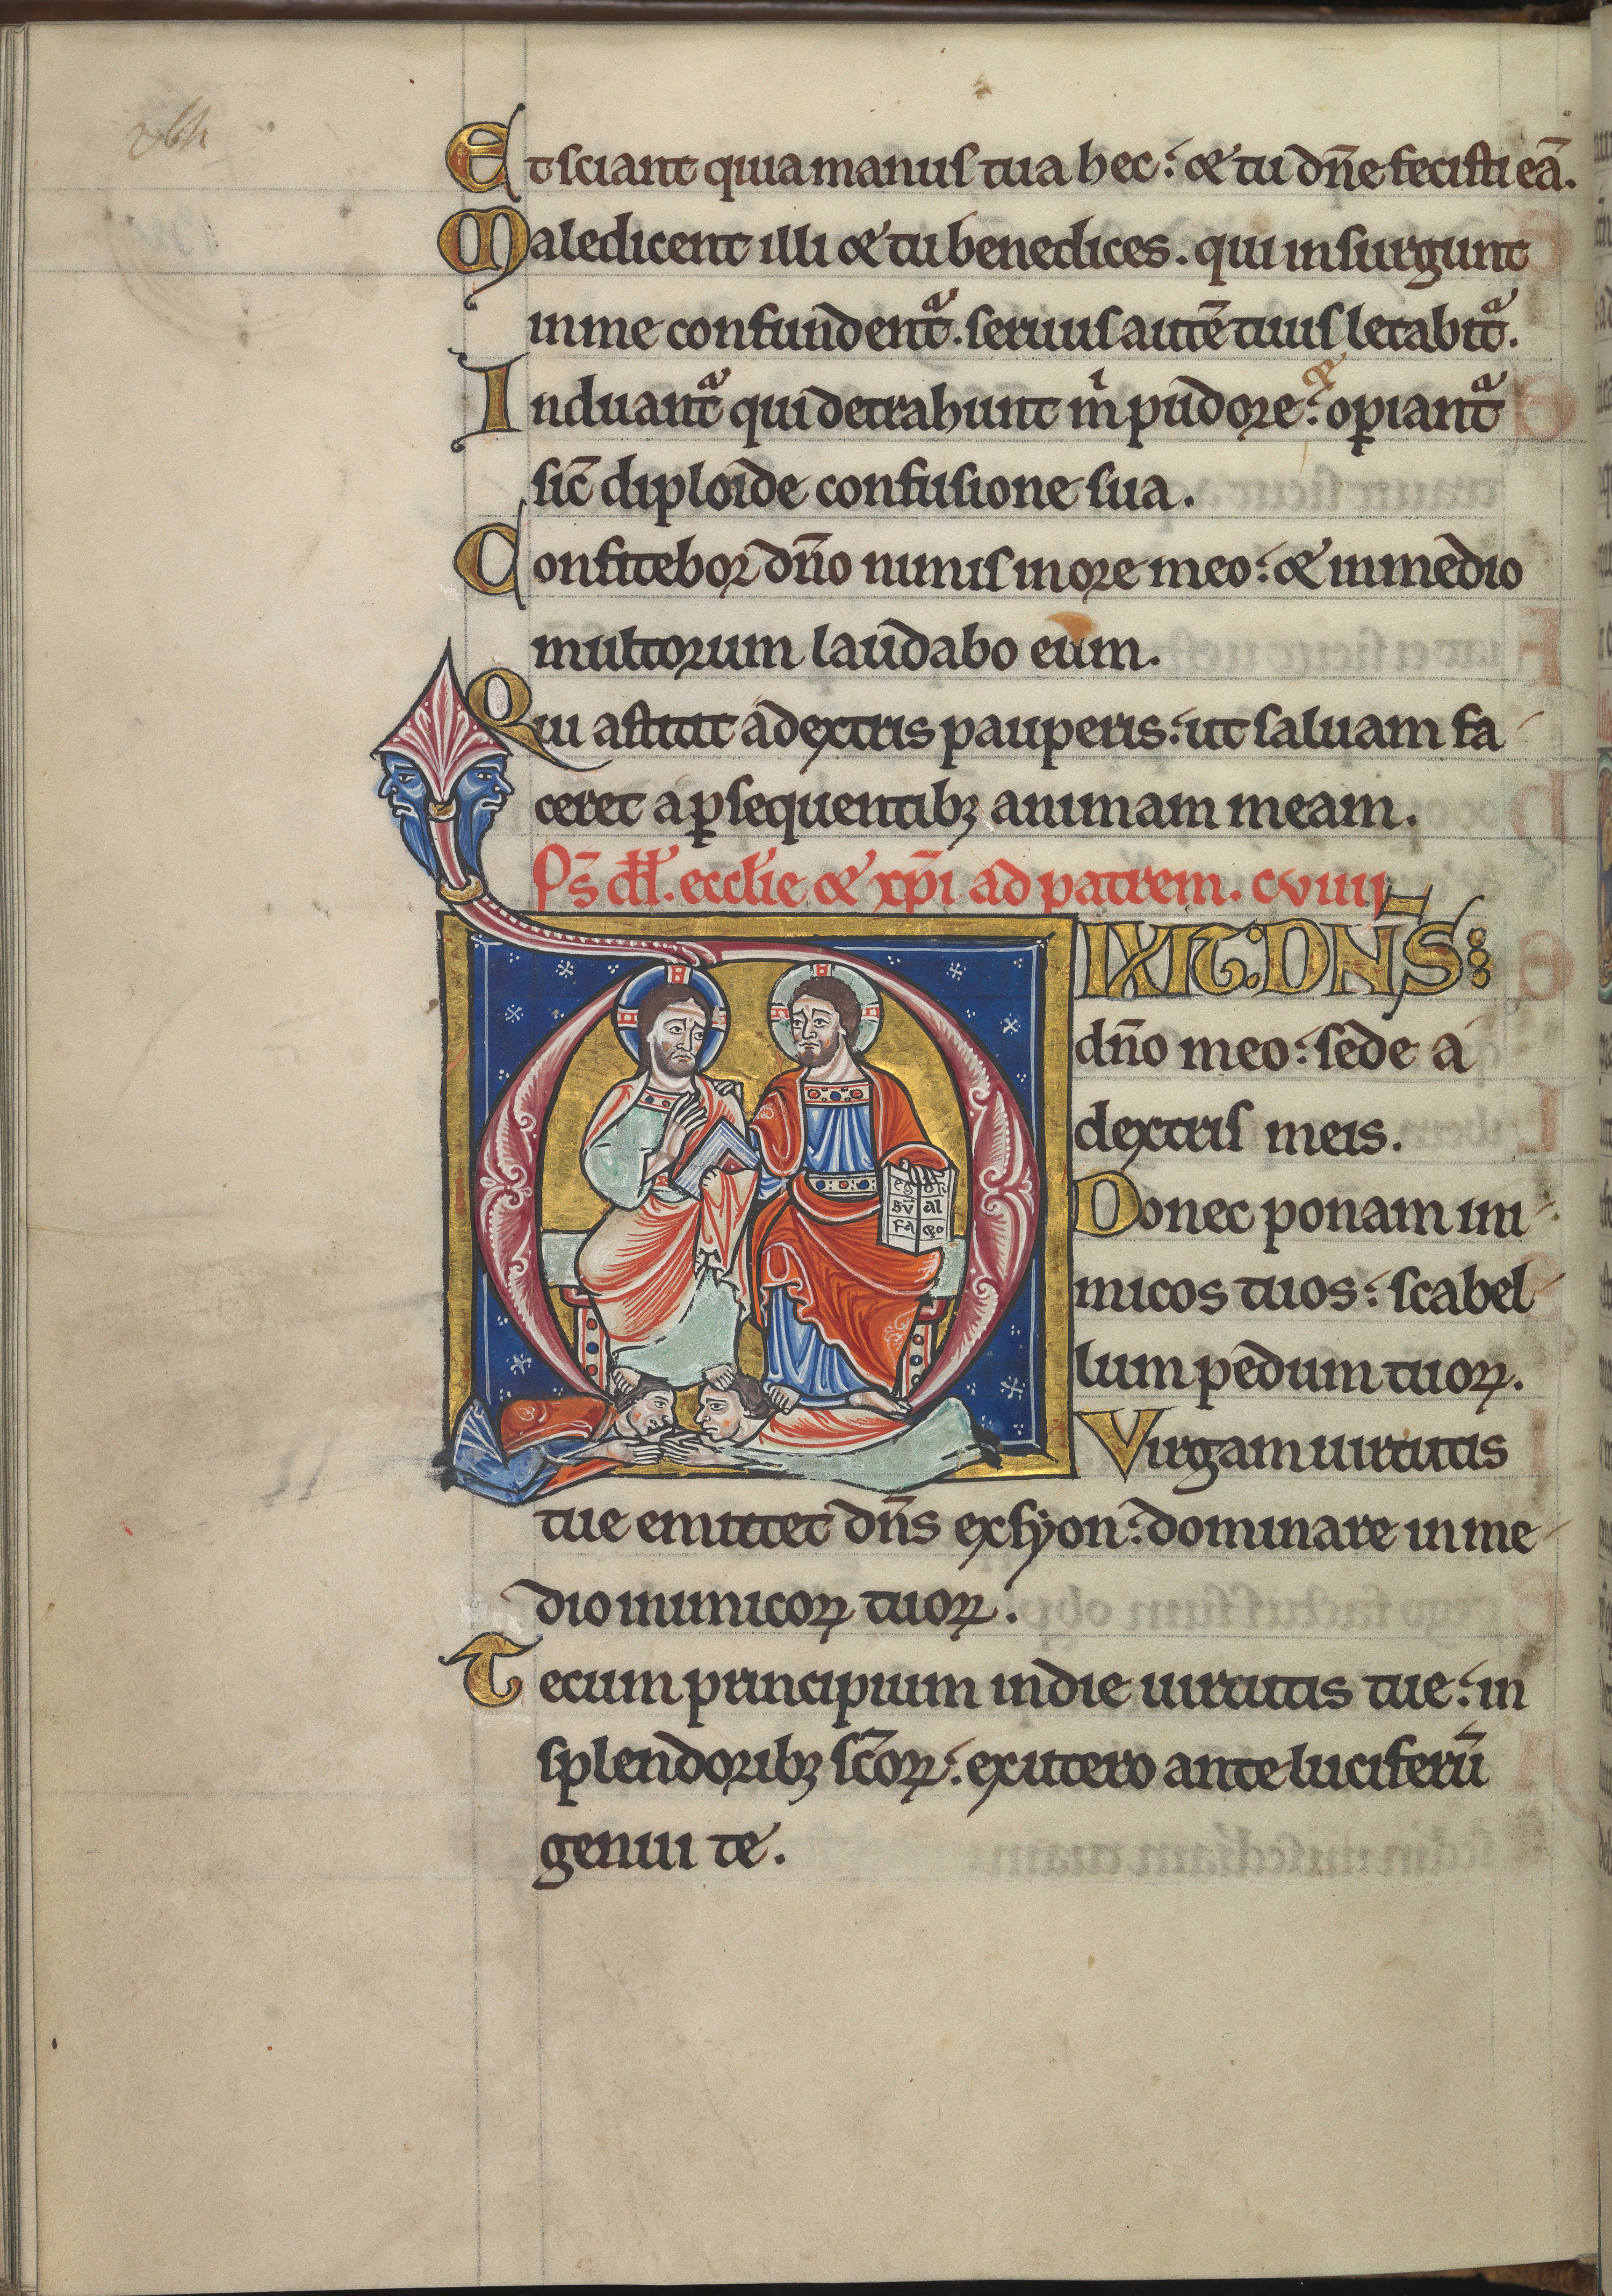 Et sciant quia manus tua hec: & tu dñe fecisti eā.
Maledicent illi & tu benedices. qui insurgunt
in me confundent᷑. seruus autē tuus letabit᷑.
Induant᷑ qui detrahunt m̍ pudore: & opiant᷑
sic̄ diploide confusione sua.
Confitebor dño nimis in ore meo: & in medio
multorum laudabo eum.
Qui astitit a dextris pauperis: ut saluam fa
ceret a ꝑsequentibꝫ animam meam.
Ps̄ dd̄. ecclie & xp̄i ad patrem. cviiii
DIXIT: DN̄S:
dño meo: sede a
dextris meis.
Donec ponam ini
micos tuos: scabel
lum pedum tuoꝝ.
Virgam uirtutis
tue emittet dñs ex syon: dominare in me
dio inimicoꝝ tuoꝝ.
Tecum principium in die uirtutis tue: in
splendoribꝫ sc̄oꝝ: ex utero ante luciferū
genui te.